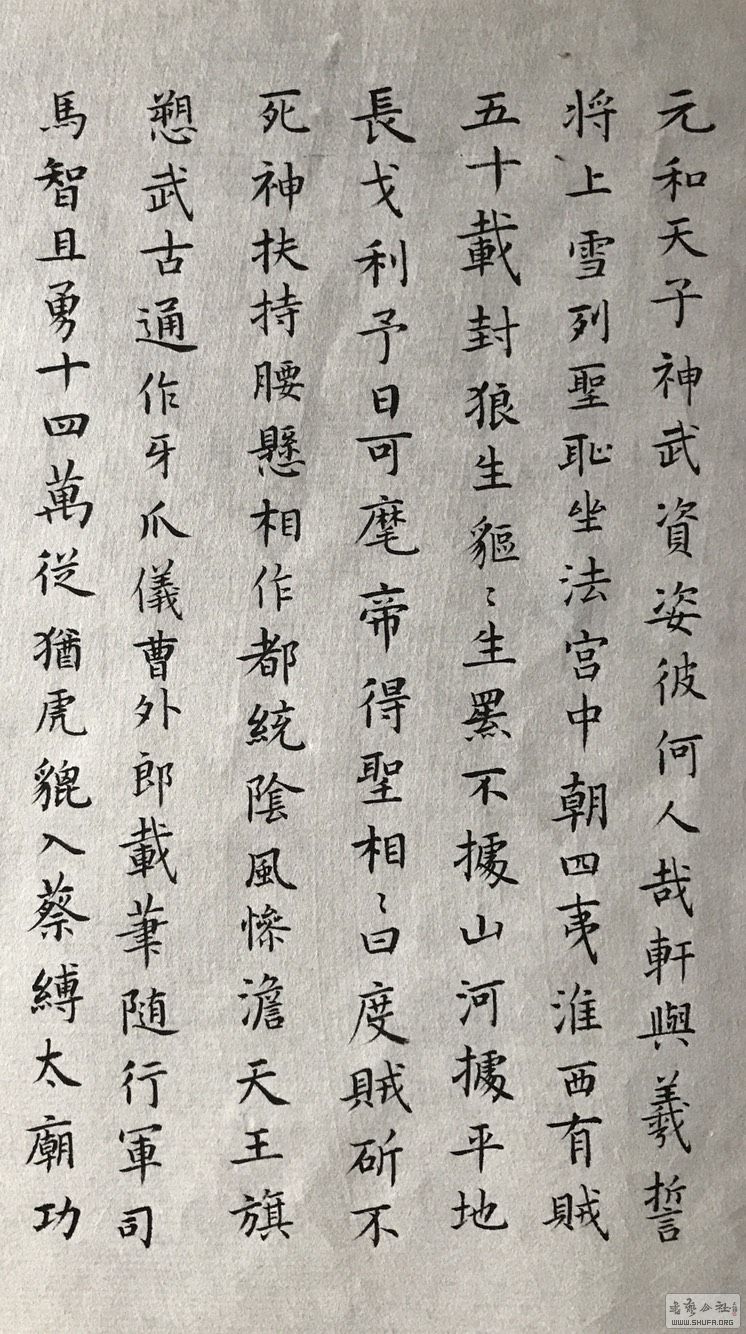 元和天子神武資姿彼何人哉軒與羲誓
将上雪列聖恥坐法宫中朝四夷淮西有賊
五十載封狼生貙〻生羆不據山河據平地
長戈利予日可麾帝得聖相〻曰度賊斫不
死神扶持腰懸相作都統陰風慘澹天王旗
愬武古通作牙爪儀曹外郎載筆随行軍司
馬智且勇十四萬從猶虎貔入蔡縛太廟功
书艺公社
WWW.SHUFA.ORG